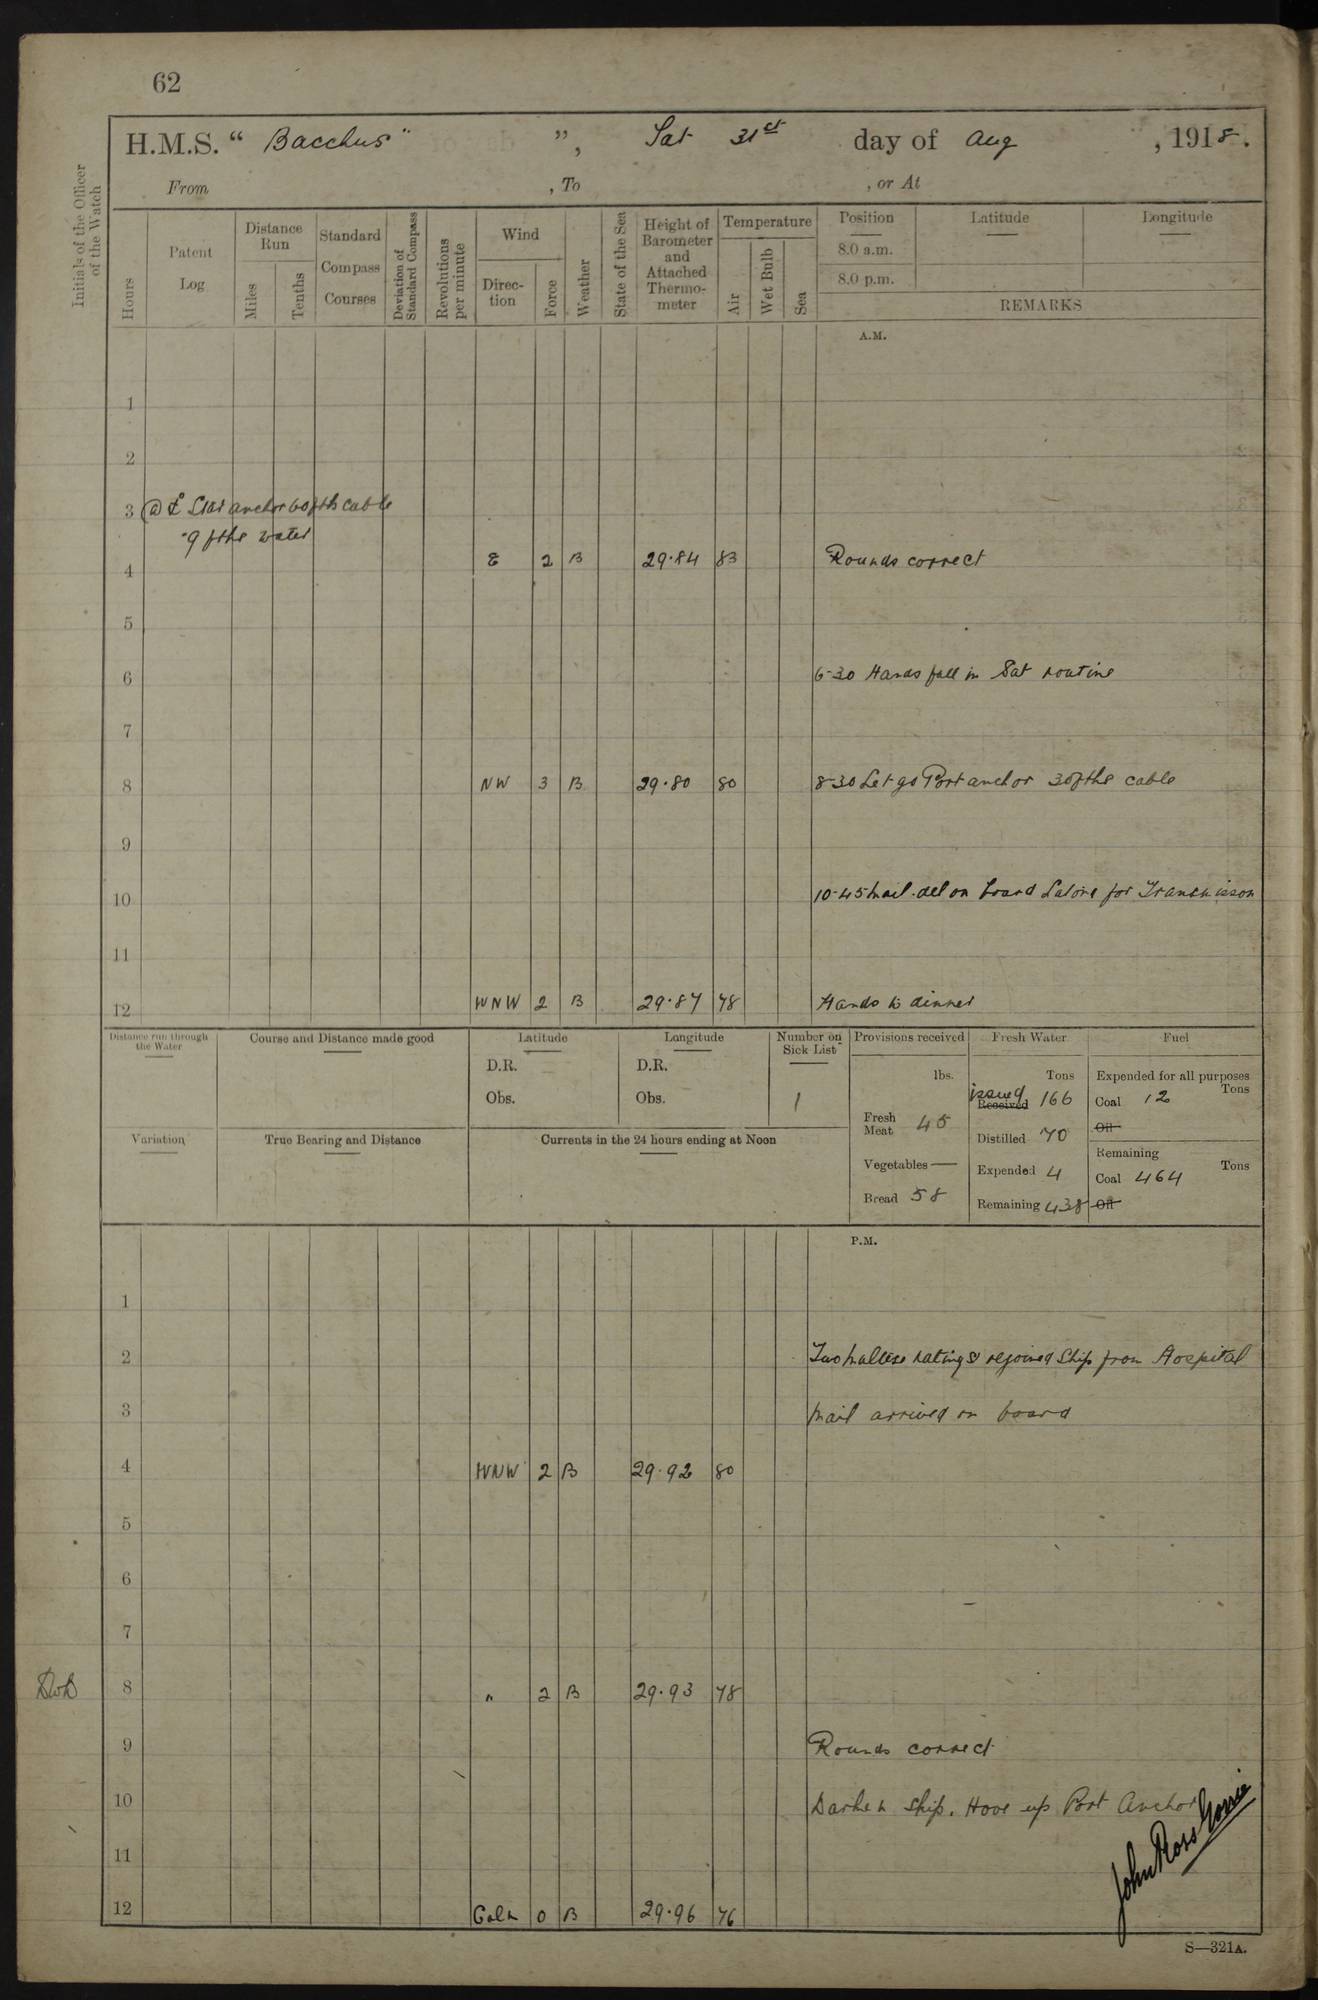 62
H.M.S. " Bacchus " ", Sat 31st day of Aug , 1918.
From , To , or At
Initials of the Officer of the Watch
Hours
Patent Log
Distance Run
Miles
Tenths
Standard Compass Courses
Deviation of Standard Compass
Revolutions per minute
Wind
Direction
Force
Weather
State of the Sea
Height of Barometer and Attached Thermometer
Temperature
Air
Wet Bulb
Sea
Position Latitude Longitude
8.0 a.m.
8.0 p.m.
REMARKS
A.M.
1
2
3 @ Star anchor 60 fths cable
9 fths water
4 E 2 B 29.84 83 Rounds correct
5
6 6-30 Hands fall in Sat routine
7
8 NW 3 B 29.80 80 8-30 Let go Port anchor 30 fths cable
9
10 10-45 Mail del on board for
11
12 WNW 2 B 29.87 78 Hands to dinner
Distance run through the Water
Course and Distance made good
Latitude
D.R.
Obs.
Longitude
D.R.
Obs.
Number on Sick List
1
Provisions received
lbs.
Fresh Meat 45
Vegetables —
Bread 58
Fresh Water
Tons
issued Received 166
Distilled 70
Expended 4
Remaining 438
Fuel
Expended for all purposes
Tons
Coal 12
Oil
Remaining
Tons
Coal 464
Oil
Variation
True Bearing and Distance
Currents in the 24 hours ending at Noon
P.M.
1
2 Two Maltese ratings rejoined Ship from Hospital
3 Mail arrived on board
4 WNW 2 B 29.92 80
5
6
7
8 " 2 B 29.93 78
9 Rounds correct
10 Darken ship. Hove up Port Anchor
11
12 Calm 0 B 29.96 76
John Ross
S—321A.